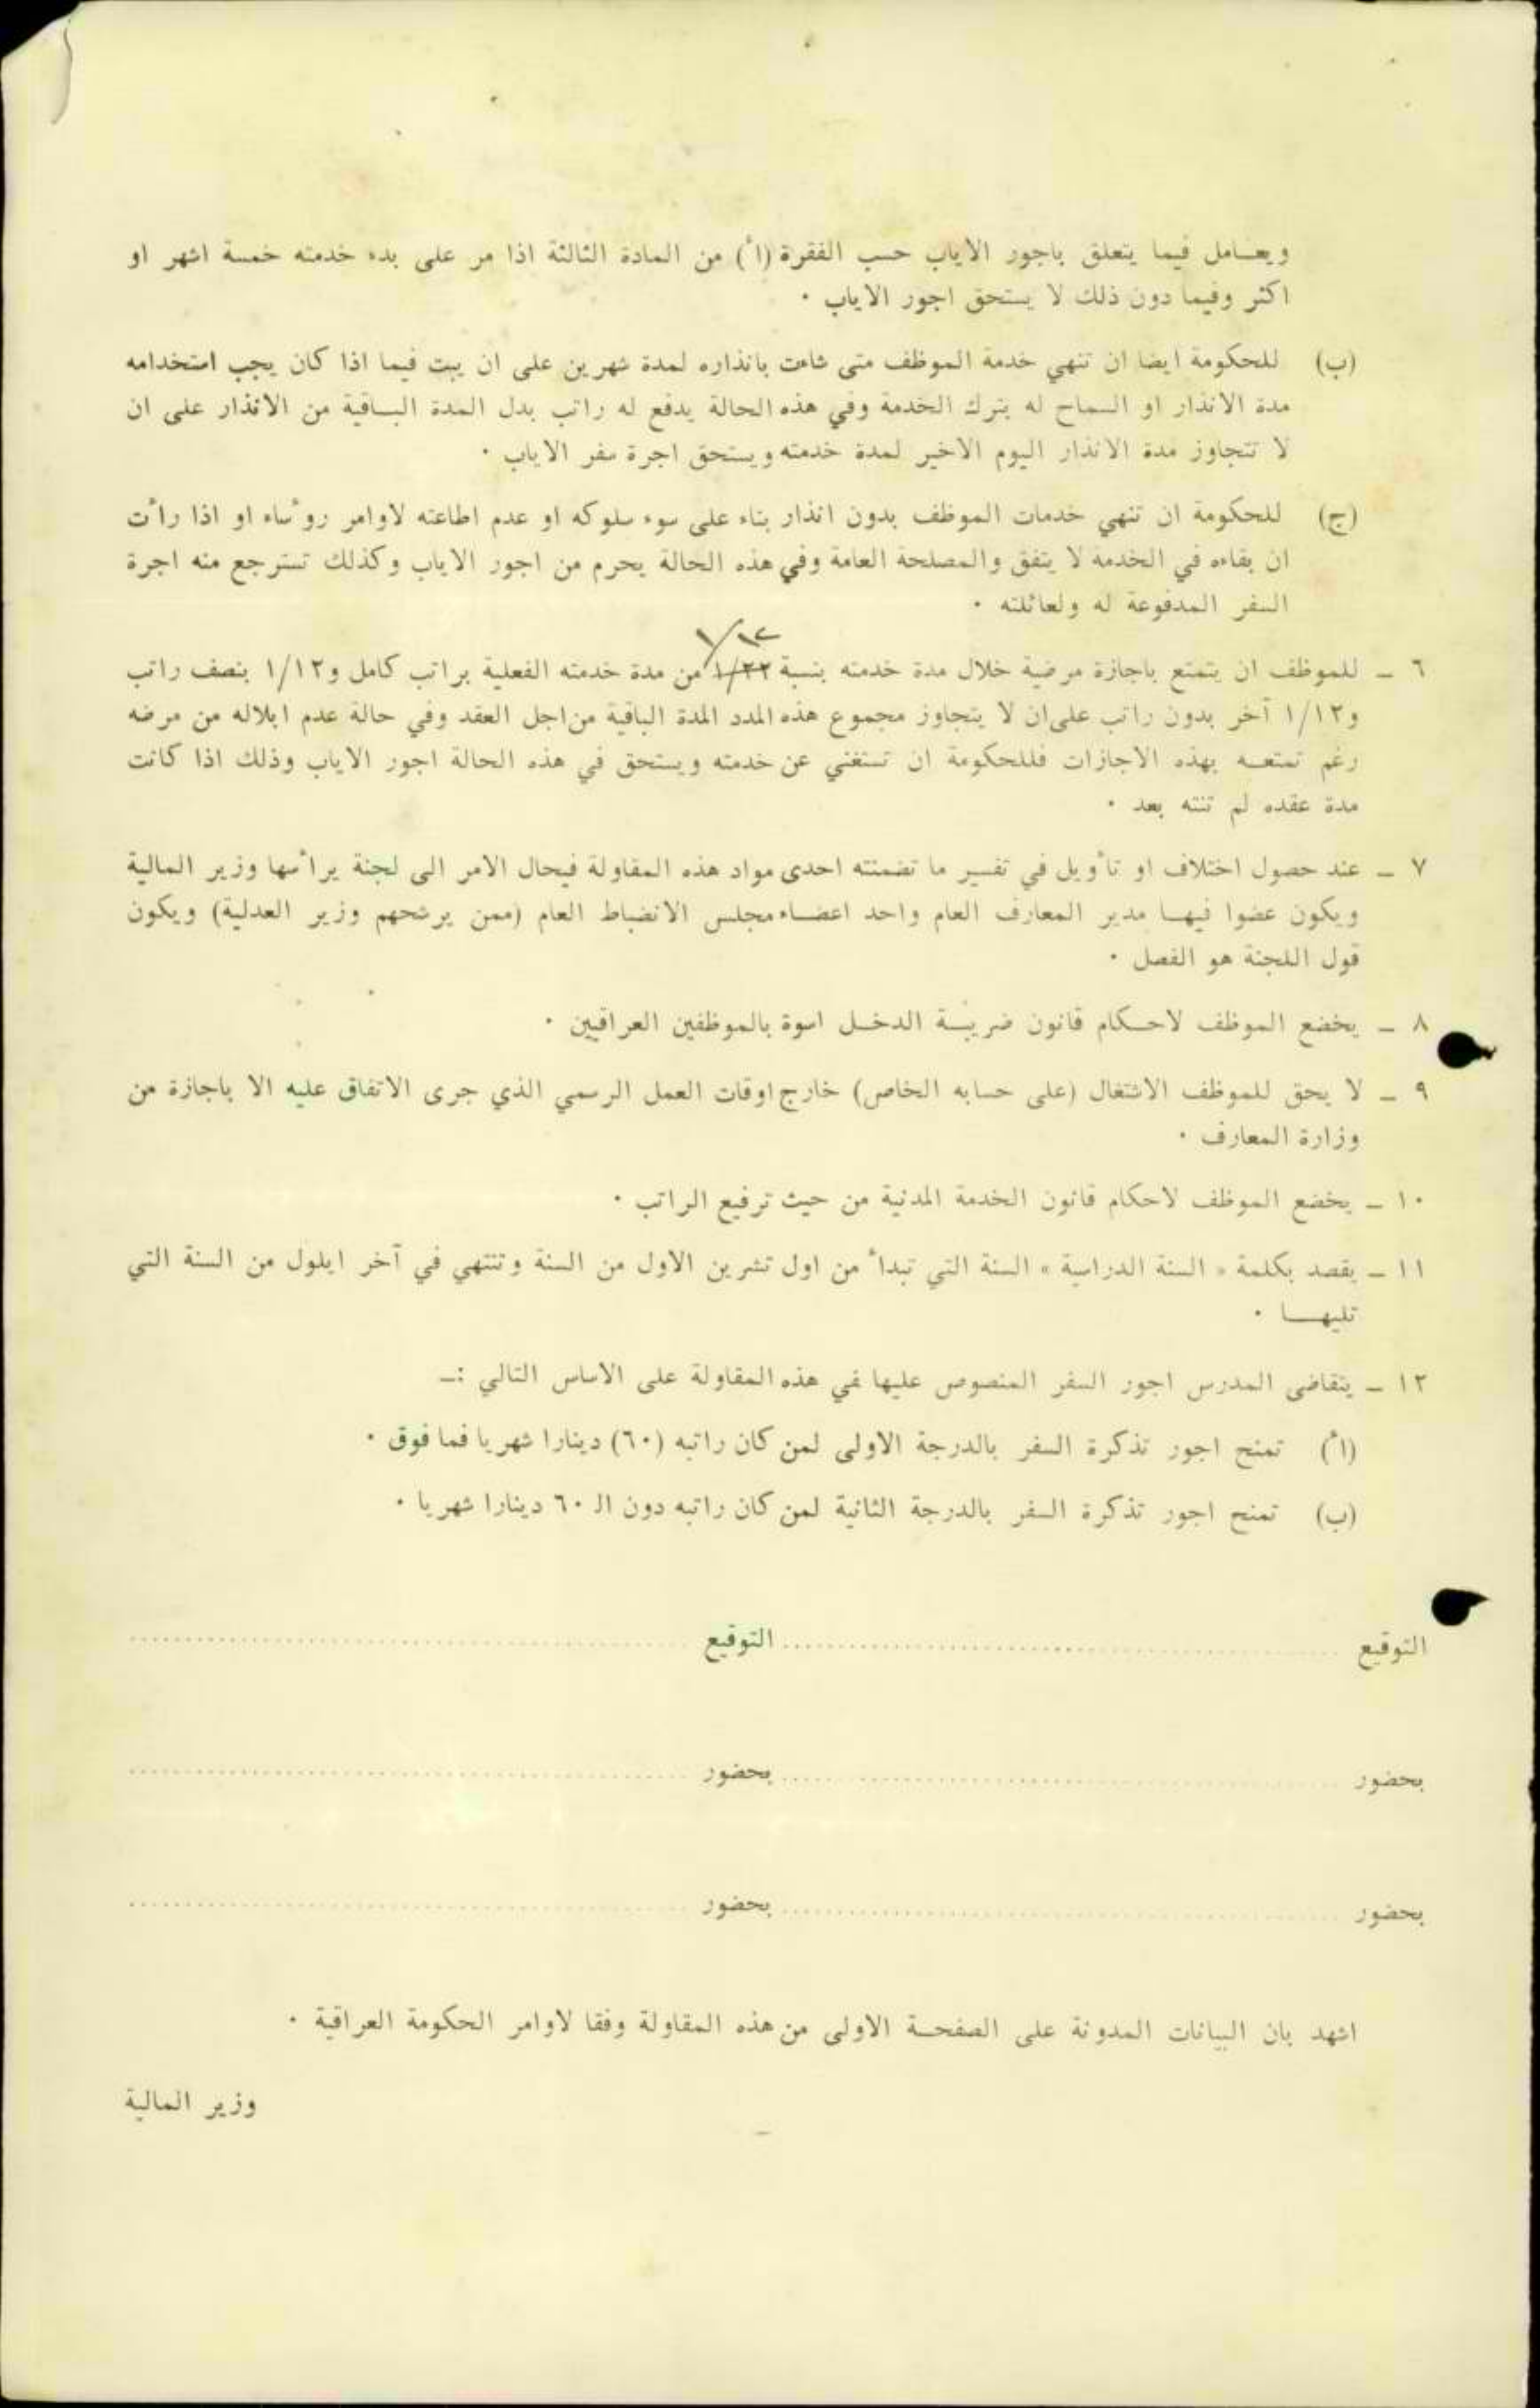 ويعـامل فيما يتعلق باجور الاياب حسب الفقرة (أ) من المادة الثالثة اذا مر على بدء خدمته خمسة اشهر او
اكثر وفيما دون ذلك لا يستحق اجور الاياب ٠
(ب) للحكومة ايضا ان تنهي خدمة الموظف متى شاءت بانذاره لمدة شهرين على ان يبت فيما اذا كان يجب استخدامه
مدة الانذار او السماح له بترك الخدمة وفي هذه الحالة يدفع له راتب بدل المدة البـاقية من الانذار على ان
لا تتجاوز مدة الانذار اليوم الاخير لمدة خدمته ويستحق اجرة سفر الاياب ٠
(ج) للحكومة ان تنهي خدمات الموظف بدون انذار بناء على سوء سلوكه او عدم اطاعته لاوامر رؤساء او اذا رأت
ان بقاءه في الخدمة لا يتفق والمصلحة العامة وفي هذه الحالة يحرم من اجور الاياب وكذلك تسترجع منه اجرة
السفر المدفوعة له ولعائلته ٠
١/١٢
٦ ـ للموظف ان يتمتع باجازة مرضية خلال مدة خدمته بنسبة ١/٢٢ من مدة خدمته الفعلية براتب كامل و١/١٢ بنصف راتب
و١/١٢ آخر بدون راتب على ان لا يتجاوز مجموع هذه المدد المدة الباقية من اجل العقد وفي حالة عدم ابلاله من مرضه
رغم تمتعـه بهذه الاجازات فللحكومة ان تستغني عن خدمته ويستحق في هذه الحالة اجور الاياب وذلك اذا كانت
مدة عقده لم تنته بعد ٠
٧ ـ عند حصول اختلاف او تأويل في تفسير ما تضمنته احدى مواد هذه المقاولة فيحال الامر الى لجنة يرأسها وزير المالية
ويكون عضوا فيهـا مدير المعارف العام واحد اعضـاء مجلس الانضباط العام (ممن يرشحهم وزير العدلية) ويكون
قول اللجنة هو الفصل ٠
٨ ـ يخضع الموظف لاحـكام قانون ضريبـة الدخـل اسوة بالموظفين العراقيين ٠
٩ ـ لا يحق للموظف الاشتغال (على حسابه الخاص) خارج اوقات العمل الرسمي الذي جرى الاتفاق عليه الا باجازة من
وزارة المعارف ٠
١٠ ـ يخضع الموظف لاحكام قانون الخدمة المدنية من حيث ترفيع الراتب ٠
١١ ـ يقصد بكلمة « السنة الدراسية » السنة التي تبدأ من اول تشرين الاول من السنة وتنتهي في آخر ايلول من السنة التي
تليهـا ٠
١٢ ـ يتقاضى المدرس اجور السفر المنصوص عليها في هذه المقاولة على الاساس التالي :ـ
(أ) تمنح اجور تذكرة السفر بالدرجة الاولى لمن كان راتبه (٦٠) دينارا شهريا فما فوق ٠
(ب) تمنح اجور تذكرة السفر بالدرجة الثانية لمن كان راتبه دون الـ ٦٠ دينارا شهريا ٠
التوقيع ........................ التوقيع ........................
بحضور ........................ بحضور ........................
بحضور ........................ بحضور ........................
اشهد بان البيانات المدونة على الصفحـة الاولى من هذه المقاولة وفقا لاوامر الحكومة العراقية ٠
وزير المالية